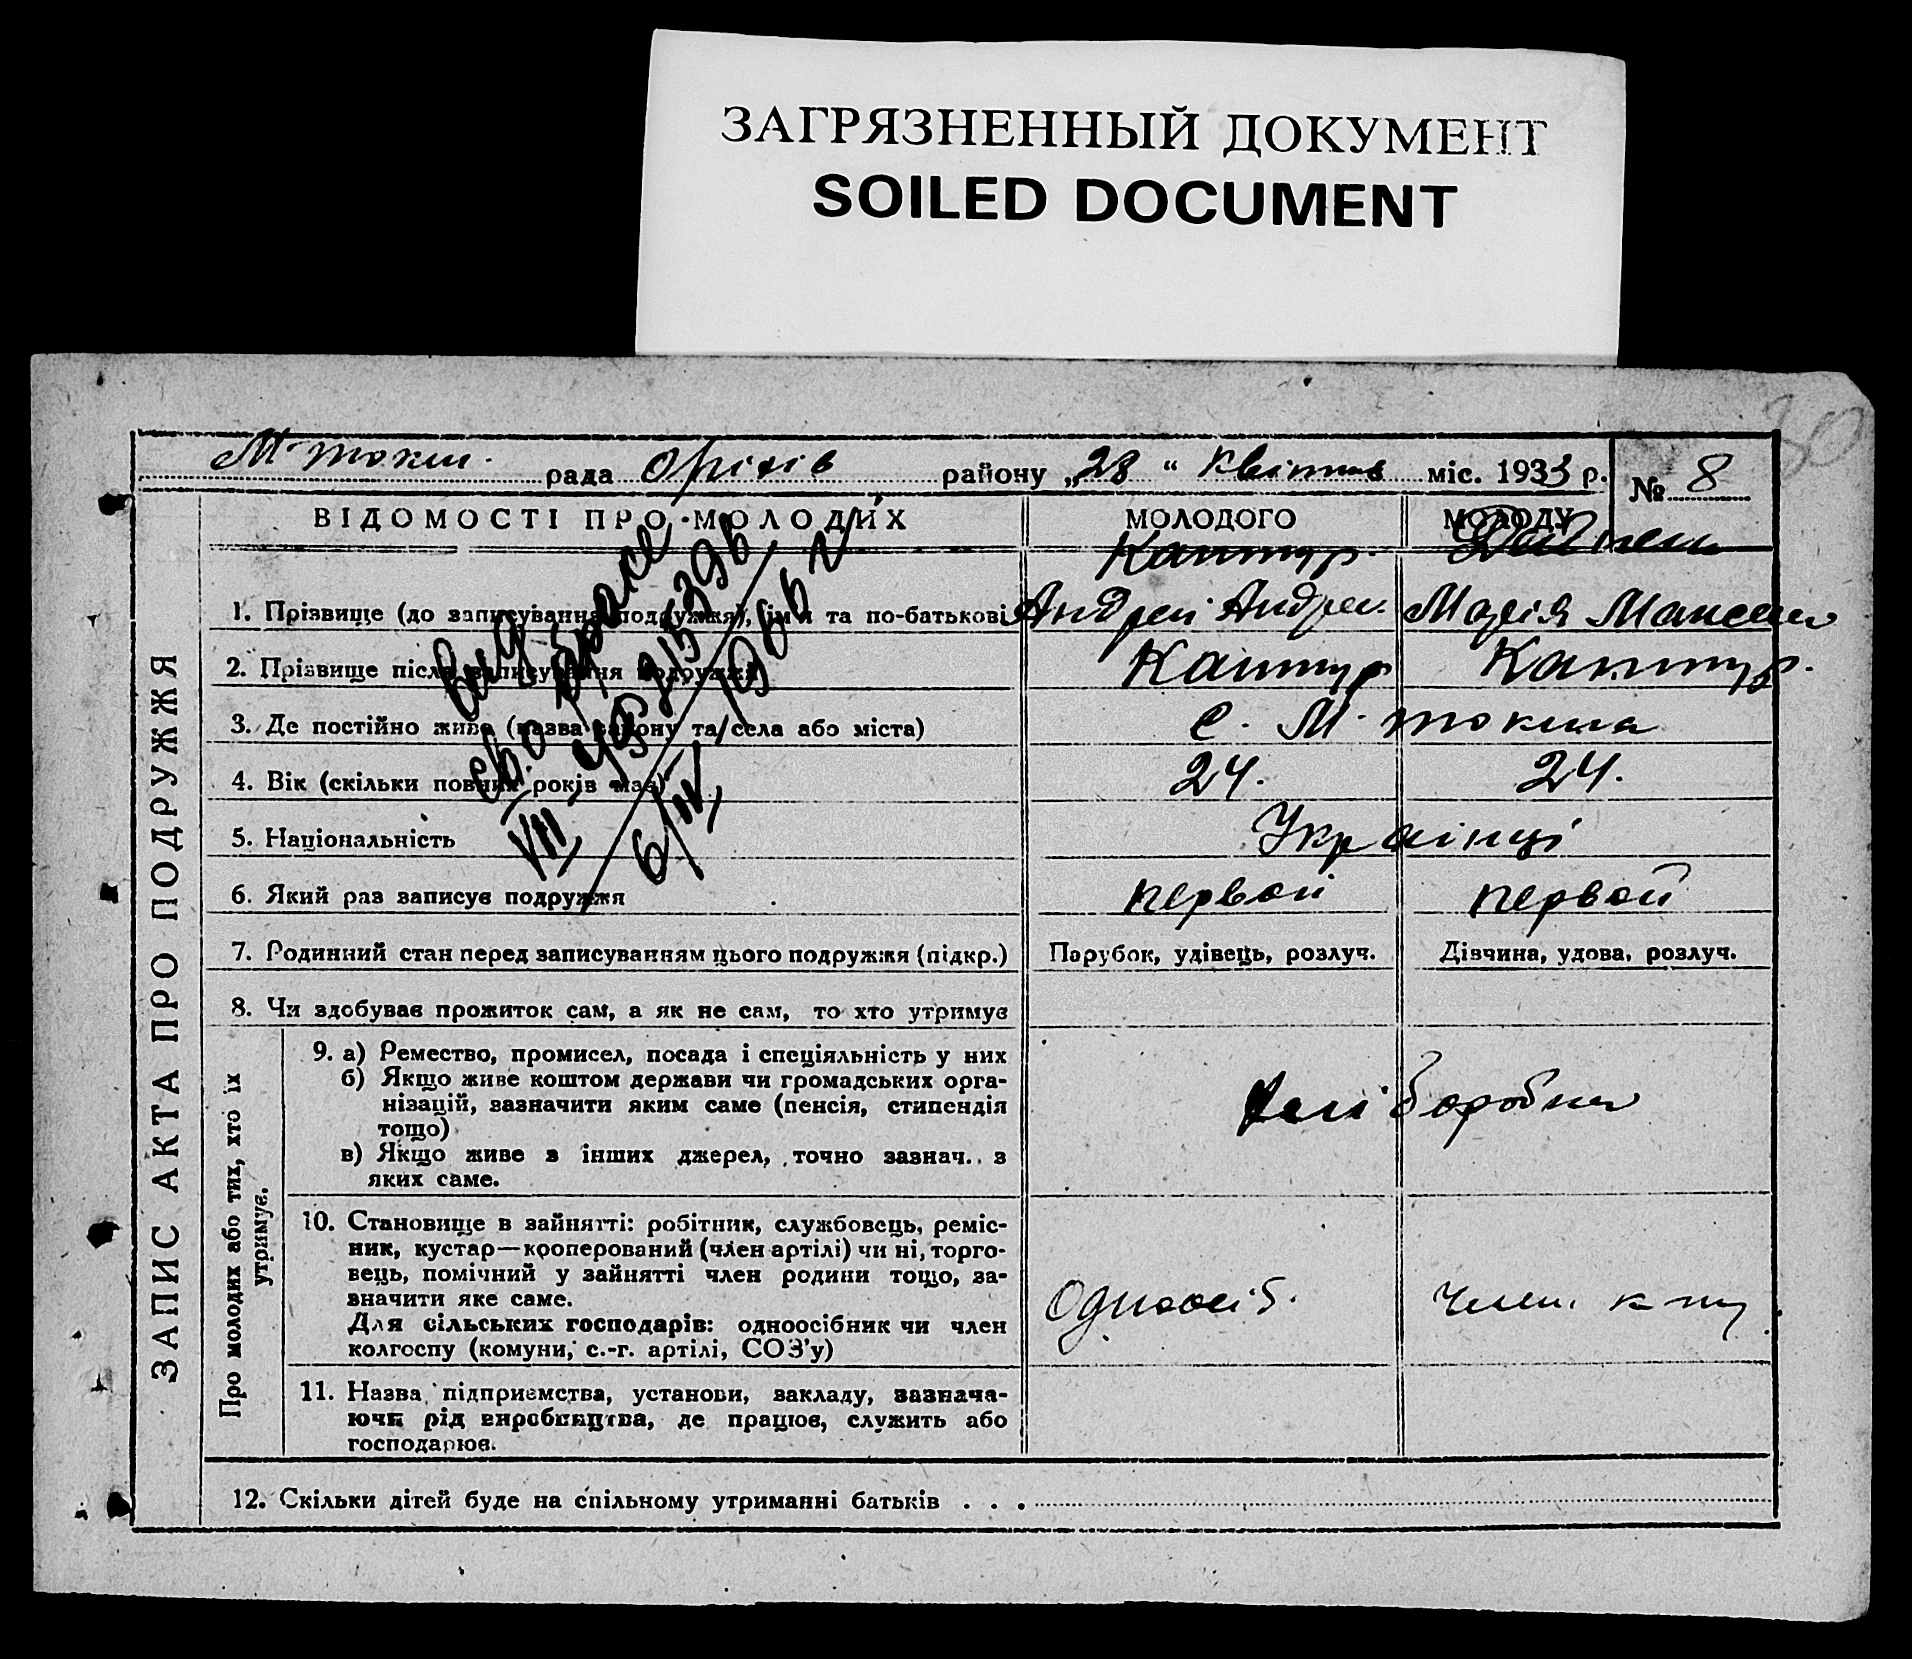 ЗАГРЯЗНЕННЫЙ ДОКУМЕНТ
SOILED DOCUMENT
30
М-токм. рада Оріхів району „28“ квітня міс. 1933 р. № 8
ЗАПИС АКТА ПРО ПОДРУЖЖЯ
ВІДОМОСТІ ПРО МОЛОДИХ МОЛОДОГО МОЛОДУ
Каптур
1. Прізвище (до записування подружжя), ім'я та по-батькові Андрей Андрее. Марія
2. Прізвище після записування подружжя Каптур Каптур.
3. Де постійно живе (назва району та села або міста) с. М. токма
4. Вік (скільки повних років має) 24. 24.
5. Національність Українці
6. Який раз записує подружжя первой первой
7. Родинний стан перед записуванням цього подружжя (підкр.) Парубок, удівець, розлуч. Дівчина, удова, розлуч.
8. Чи здобуває прожиток сам, а як не сам, то хто утримує
Про молодих або тих, хто їх утримує.
9. а) Ремество, промисел, посада і спеціяльність у них
б) Якщо живе коштом держави чи громадських орга-
нізацій, зазначити яким саме (пенсія, стипендія
тощо)
в) Якщо живе з інших джерел, точно зазнач. з
яких саме.
хліборобни
10. Становище в зайнятті: робітник, службовець, реміс-
ник, кустар—крoперований (член артілі) чи ні, торго-
вець, помічний у зайнятті член родини тощо, за-
значити яке саме.
Для сільських господарів: одноосібник чи член
колгоспу (комуни, с.-г. артілі, СОЗ'у)
Одноосіб. Член.
11. Назва підприємства, установи, закладу, зазнача-
ючи рід виробництва, де працює, служить або
господарює.
12. Скільки дітей буде на спільному утриманні батьків . . .
Выд
св. о браке
VII